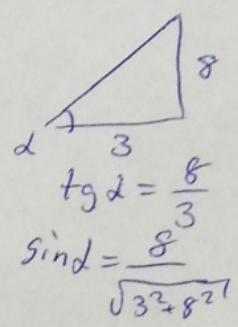 8
α 3
tg α = 8/3
sin α = 8/√(3²+8²)